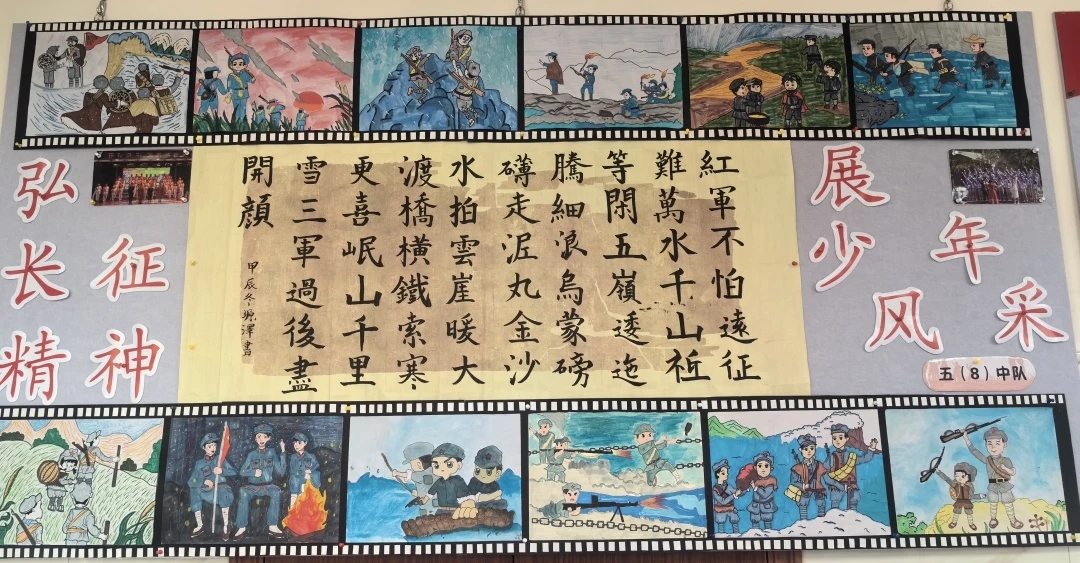 弘
长征
精神
紅軍不怕遠征
難萬水千山衹
等閑五嶺逶迤
騰細浪烏蒙磅
礴走泥丸金沙
水拍雲崖暖大
渡橋橫鐵索寒
更喜岷山千里
雪三軍過後盡
開顔
甲辰冬 澤書
展
少年
风采
五(8)中队